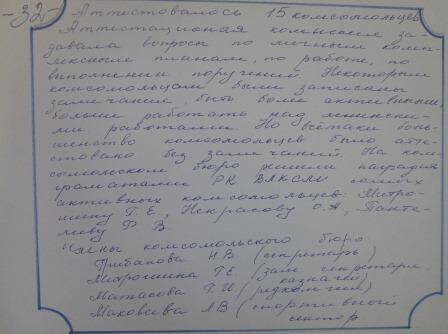 -32-
Аттестовалось 15 комсомольцев
Аттестационая комиссия за-
давала вопросы по личным комп-
лексным планам, по работе, по
выполнении поручений. Некоторым
комсомольцам были записаны
замечания, быть более активными
больше работать над ленински-
ми работами. Но всётаки боль-
шенство комсомольцев было атте-
стовано без замечаний. На ком-
сомольском бюро решили наградил
грамотами РК ВЛКСМ самых
активных комсомольцев: Митро-
шину Т.Е., Некрасову О.А., Панте-
лееву Ф.В.
Члены комсомольского бюро:
Грибанова Н.В (секретарь)
Митрошина Т.Е (зам секретаря
казначей)
Матасова Т.И (редколлегия)
Маковеева Л.В (спортивный
сектор